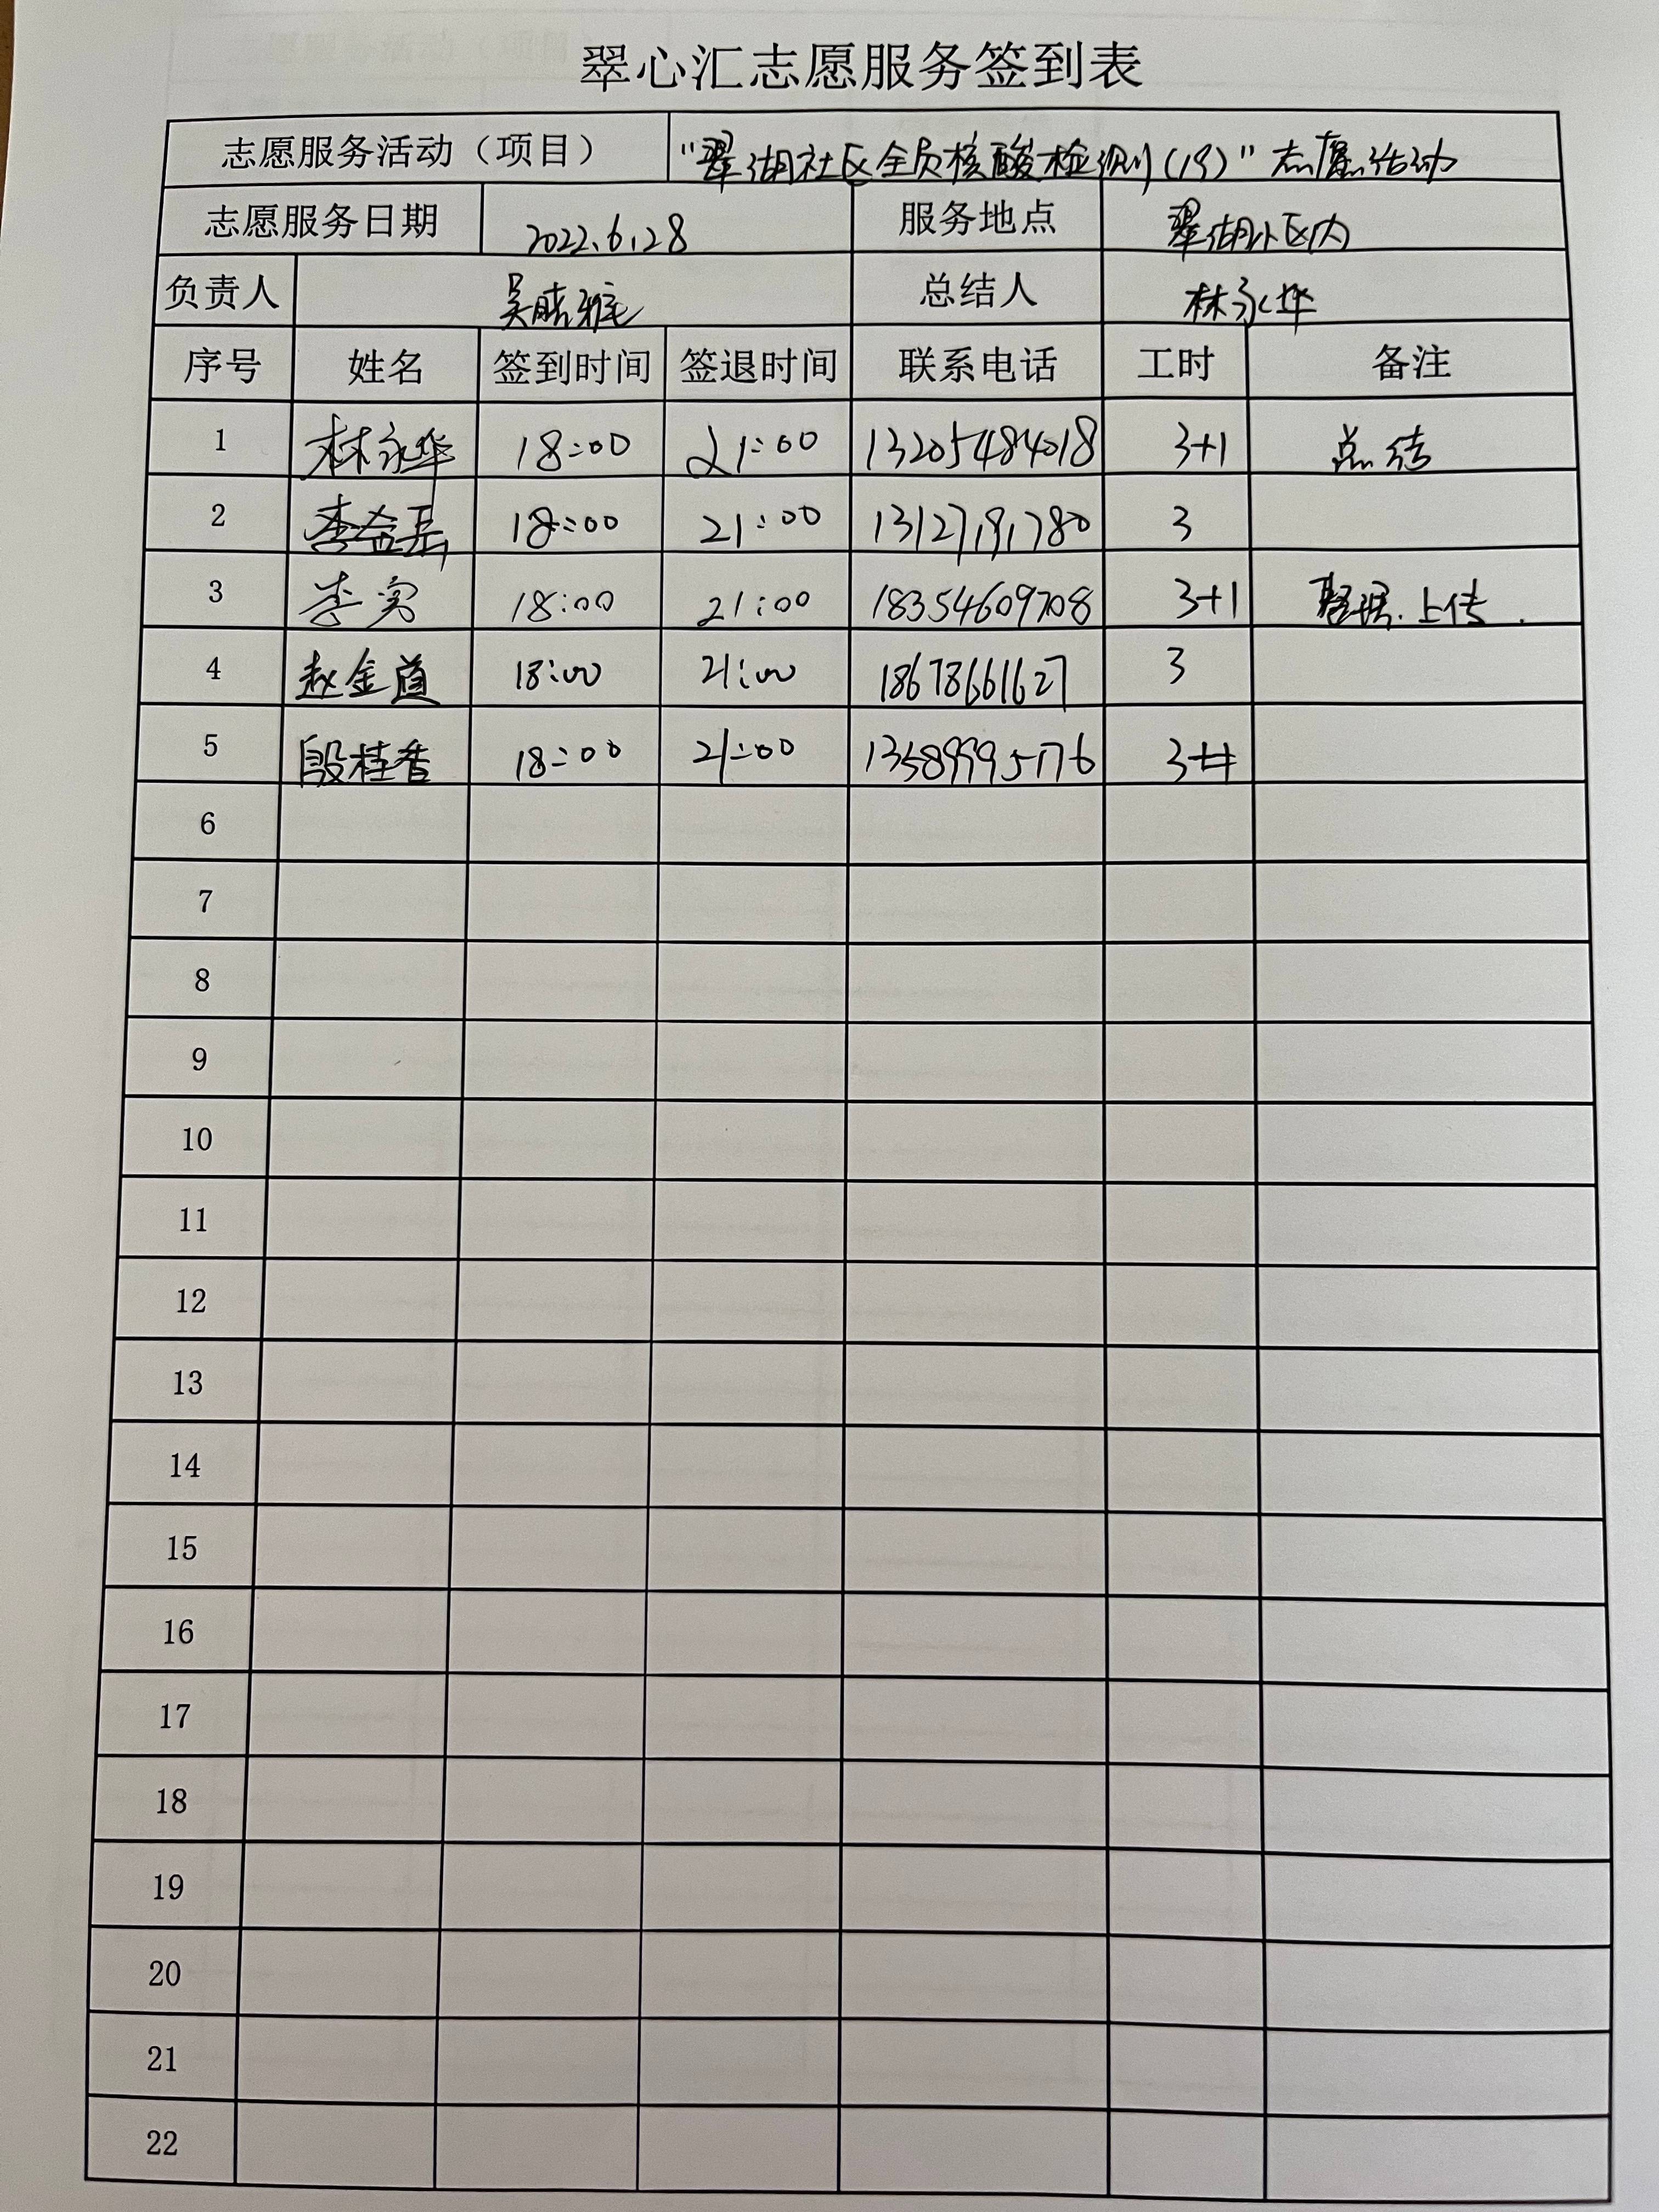 翠心汇志愿服务签到表
志愿服务活动（项目） "翠湖社区全员核酸检测(19)"志愿活动
志愿服务日期 2022.6.28 服务地点 翠湖小区内
负责人 吴晓雅 总结人 林永华
序号 姓名 签到时间 签退时间 联系电话 工时 备注
1 林永华 18:00 21:00 13205484018 3+1 总结
2 李益 18:00 21:00 13127191780 3
3 李实 18:00 21:00 18354609708 3+1 上传.
4 赵金 18:00 21:00 18678661627 3
5 段桂香 18:00 21:00 13589995176 3
6
7
8
9
10
11
12
13
14
15
16
17
18
19
20
21
22